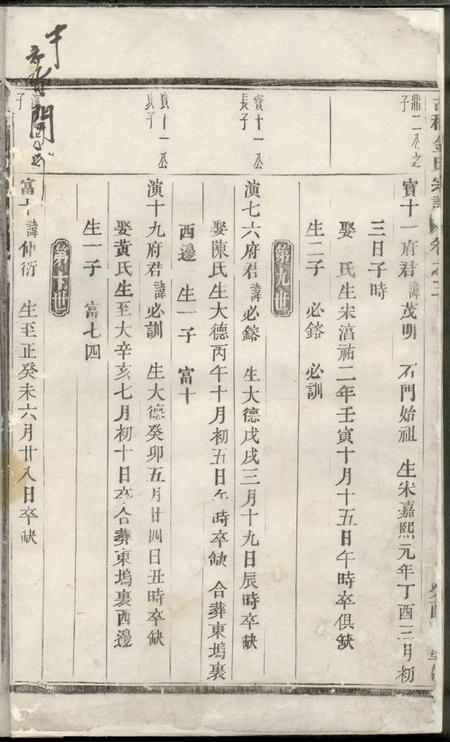 鼎二丞之
子
寶十一府君諱茂明 石門始祖 生宋嘉熙元年丁酉三月初
三日子時
娶 氏生宋淳祐二年壬寅十月十五日午時卒俱缺
生二子 必鎔 必訓
第九世
寶十一丞
長子
演七六府君諱必鎔 生大德戊戌三月十九日辰時卒缺
娶陳氏生大德丙午十月初五日午時卒缺 合葬東塢裏
西邊 生一子 富十
寶十一丞
次子
演十九府君諱必訓 生大德癸卯五月廿四日丑時卒缺
娶黃氏生至大辛亥七月初十日卒合葬東塢裏西邊
生一子 富七四
第十世
子
富十諱仲衍 生至正癸未六月廿八日卒缺